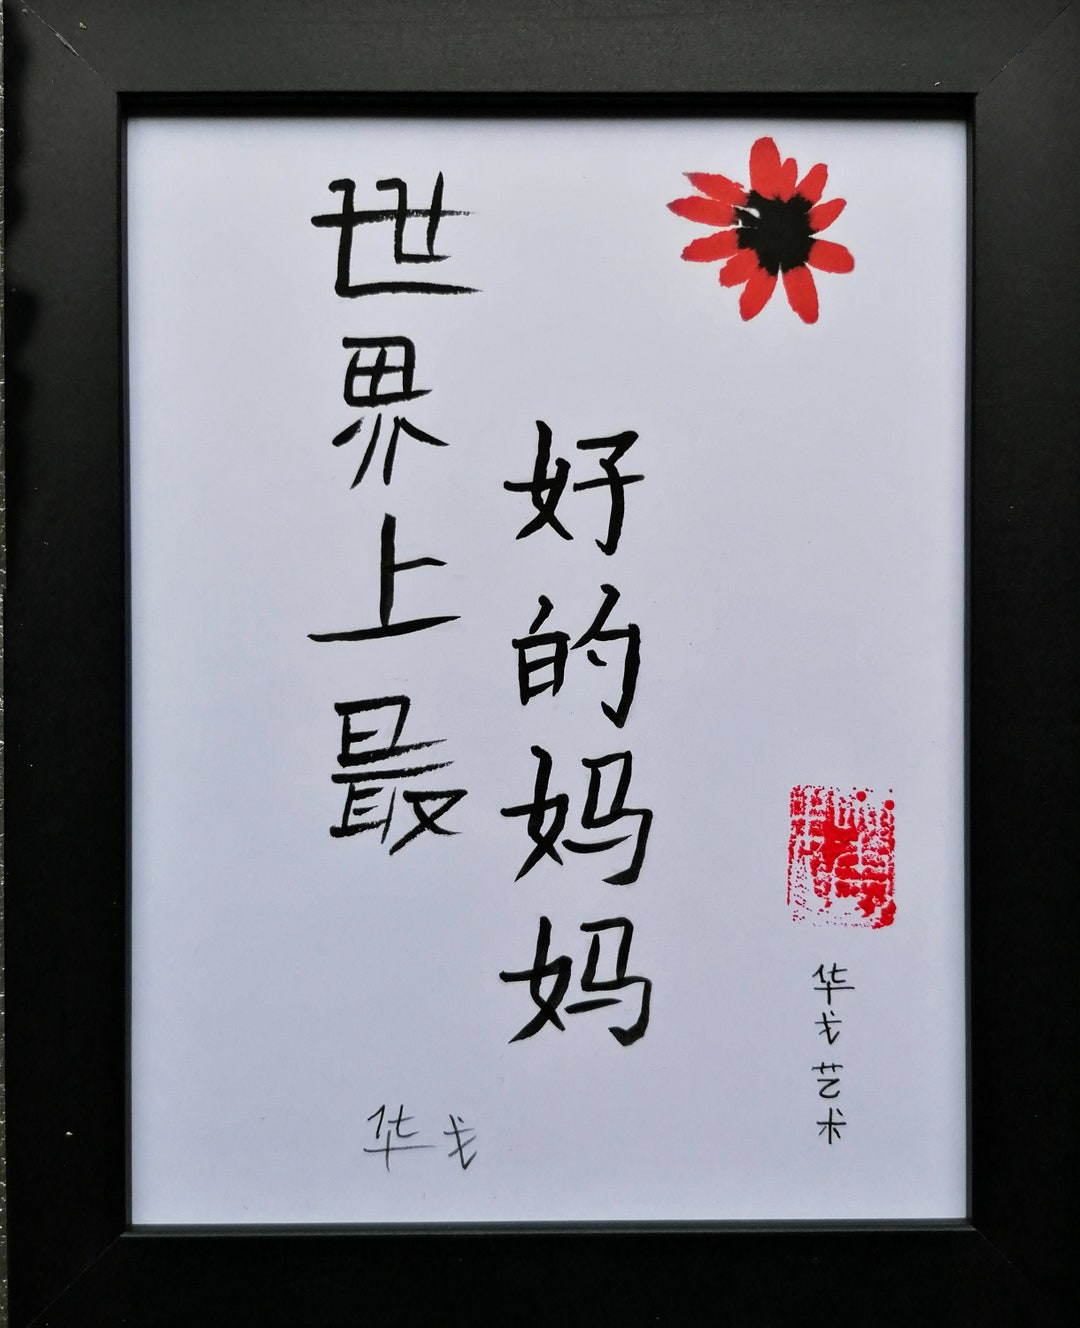 世界上最
好的妈妈
华戈
华戈艺术